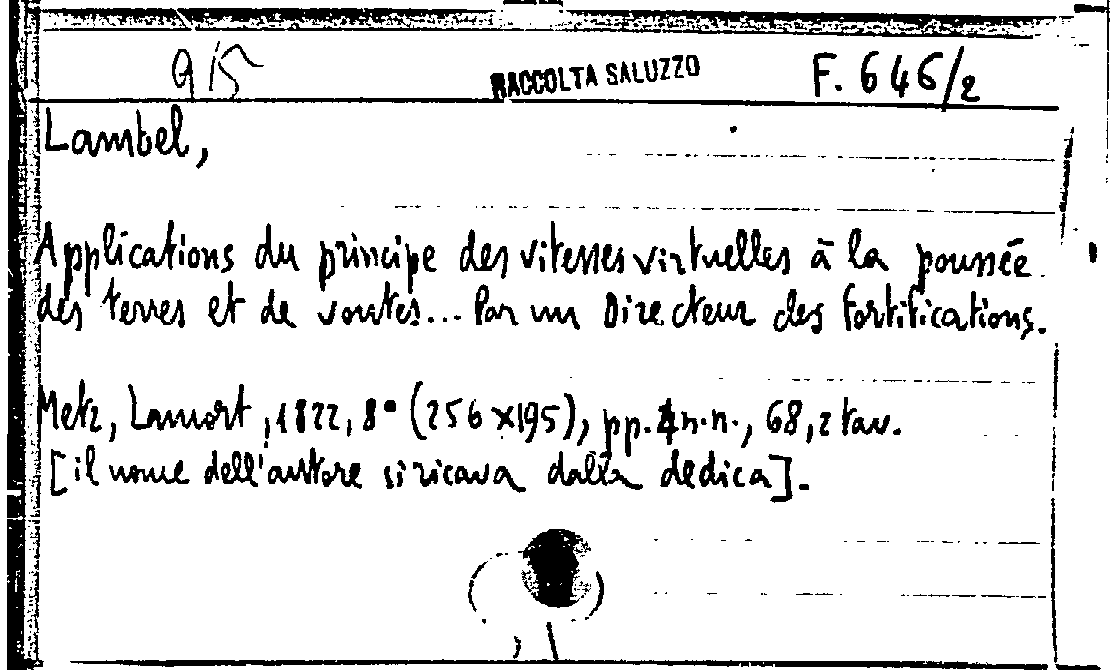 915 RACCOLTA SALUZZO F. 646/2
Lambel,
Applications du principe des vitesses virtuelles à la poussée
des terres et de voutes... Par un Directeur des Fortifications.
Metz, Lamort, 1822, 8° (256x195), pp. 4 n.n., 68, 2 tav.
[il nome dell'autore si ricava dalla dedica].